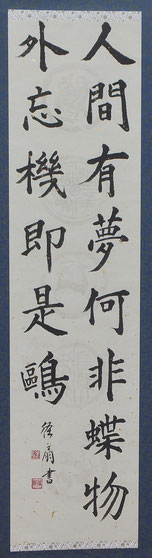 人間有夢何非蝶物
外忘機即是鷗
徐扇書